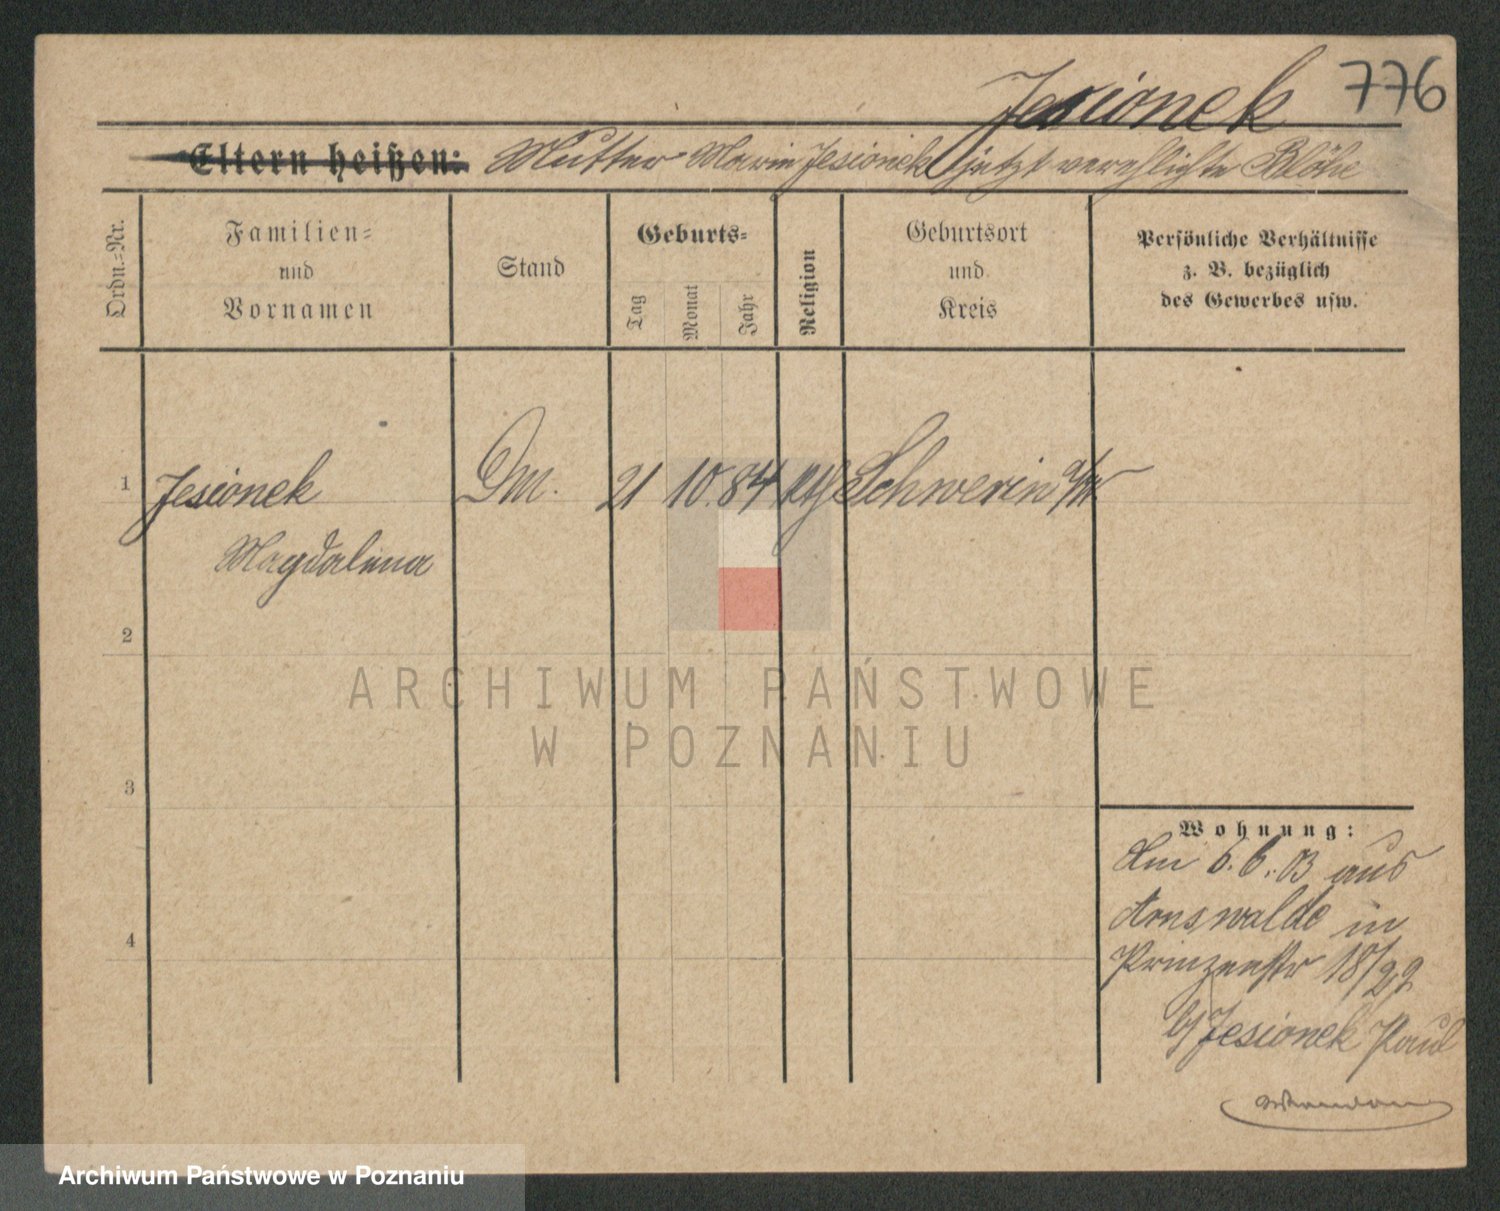 Jesionek 776
Eltern heißen: Mutter Marie Jesionek jetzt verehlichte
Ordn.-Nr.
Familien-
und
Vornamen
Stand
Geburts-
Tag
Monat
Jahr
Religion
Geburtsort
und
Kreis
Persönliche Verhältnisse
z. B. bezüglich
des Gewerbes usw.
1 Jesionek Dm. 21 10. 84 Schwerin a/W
Magdalena
2
3
4
Wohnung:
Am 6. 6. 03 aus
Arnswalde in
Prinzenstr 18/22
b/ Jesionek Paul
ARCHIWUM PAŃSTWOWE
W POZNANIU
Archiwum Państwowe w Poznaniu